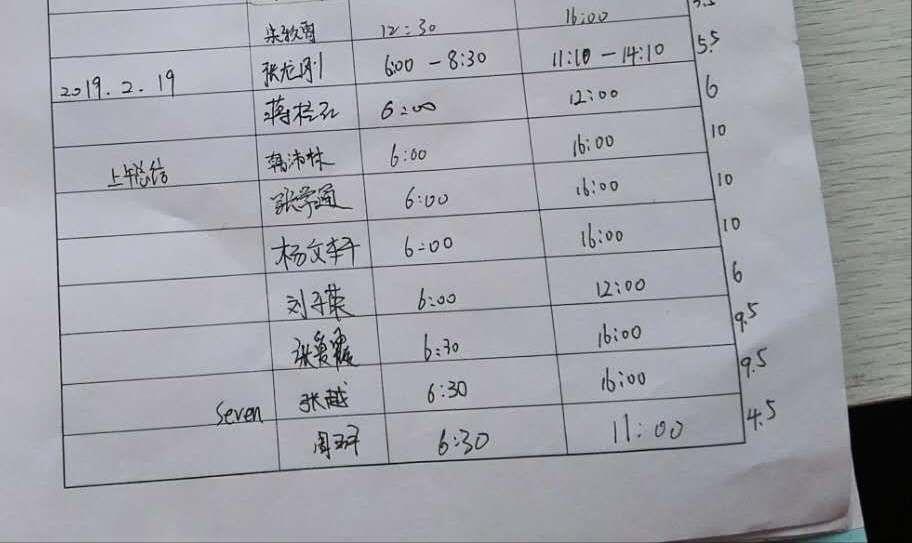 12:30 16:00 3.5
2019.2.19 张龙刚 6:00 - 8:30 11:10 - 14:10 5.5
6:00 12:00 6
6:00 16:00 10
张学通 6:00 16:00 10
杨文轩 6:00 16:00 10
6:00 12:00 6
张爱霞 6:30 16:00 9.5
Seven 张越 6:30 16:00 9.5
6:30 11:00 4.5